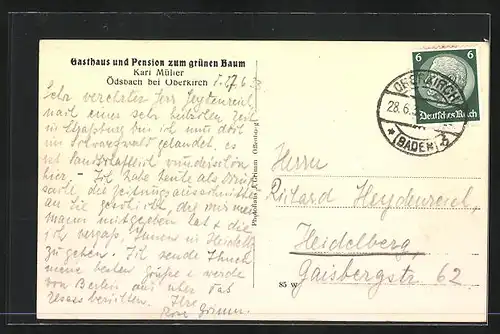 Gasthaus und Pension zum grünen Baum
Karl Müller
Ödsbach bei Oberkirch
Sehr verehrter Herr Heydenreich,
nach einer sehr hübschen Zeit
in Straßburg bin ich nun dort
im Schwarzwald gelandet, es
ist landschaftlich wunderschön
hier. – Ich habe heute als Druck-
sache die Zeitungsausschnitte
an Sie geschickt, die mir mein
Mann mitgegeben hat & die
ich vergaß, Ihnen in Heidelb.
zu geben. Ich sende Ihnen
meine besten Grüße & werde
von Berlin aus über das
berichten. Ihre
6 6
OBERKIRCH
28.6.
(BADEN)
Deutsches Reich
Herrn
Richard Heydenreich,
Heidelberg,
Gaisbergstr 62
85 w